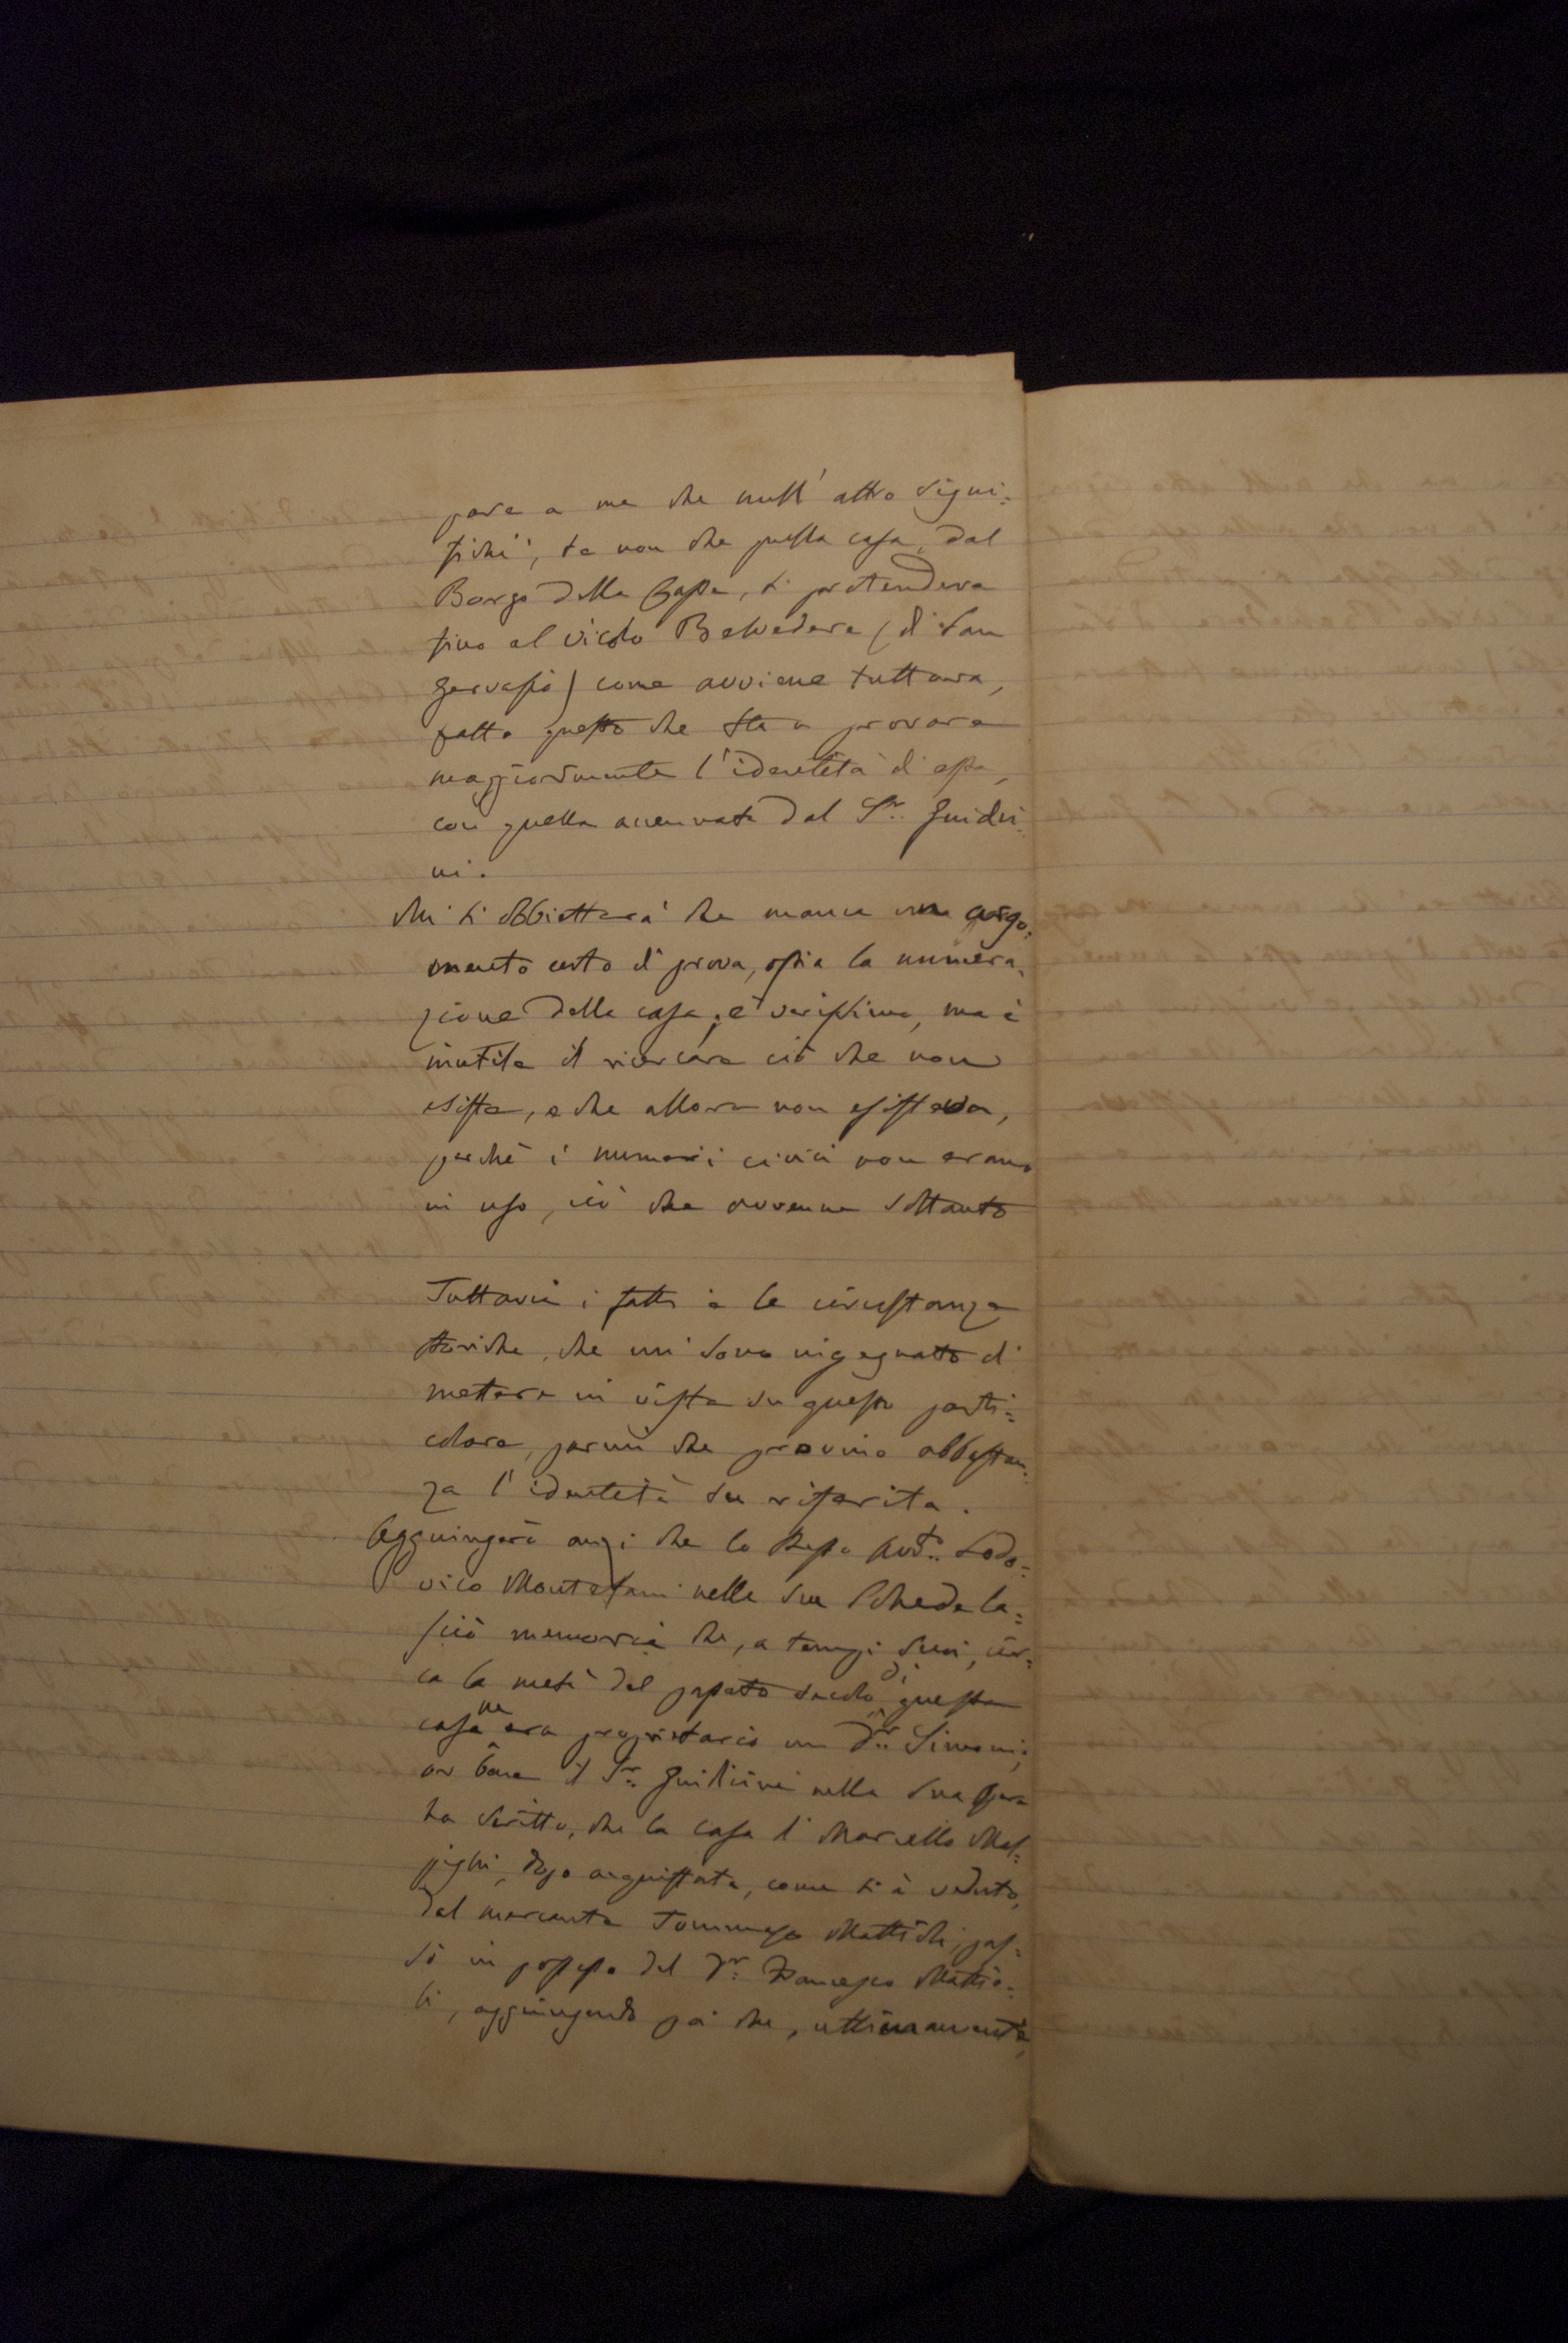 pare a me che null' altro signi=
fichi, se non che questa casa, dal
Borgo della Paglia, si protendeva
sino al vicolo Belvedere (di San
Gervasio) come avviene tuttora,
fatto questo che sta a provare
maggiormente l'identità di essa,
con quella accennata dal Sr. Guidici=
ni.
Mi si obbietterà che manca un argo=
mento certo di prova, ossia la numera=
zione della casa; è verissimo, ma è
inutile il ricercare ciò che non
esiste, e che allora non esisteva,
perchè i numeri civici non erano
in uso, ciò che avvenne soltanto
Tuttavia i fatti e le circostanze
storiche, che mi sono ingegnato di
mettere in vista su questo parti=
colare, parmi che provino abbastan=
za l'identità su riferita.
Aggiungerò anzi che lo stesso Lodo=
vico Montefani nelle sue Schede la=
sciò memoria che, a tempi suoi, cir=
ca la metà del passato secolo di questa
casa ne era proprietario un Dr. Simoni;
or bene il Sr. Guidicini nella sua opera
ha scritto, che la casa di Marcello Mal=
pighi, dopo acquistata, come si è veduto,
dal mercante Tommaso Mattioli, pas=
sò in possesso del Dr. Francesco Mattio=
li, aggiungendo poi che, ultimamente,